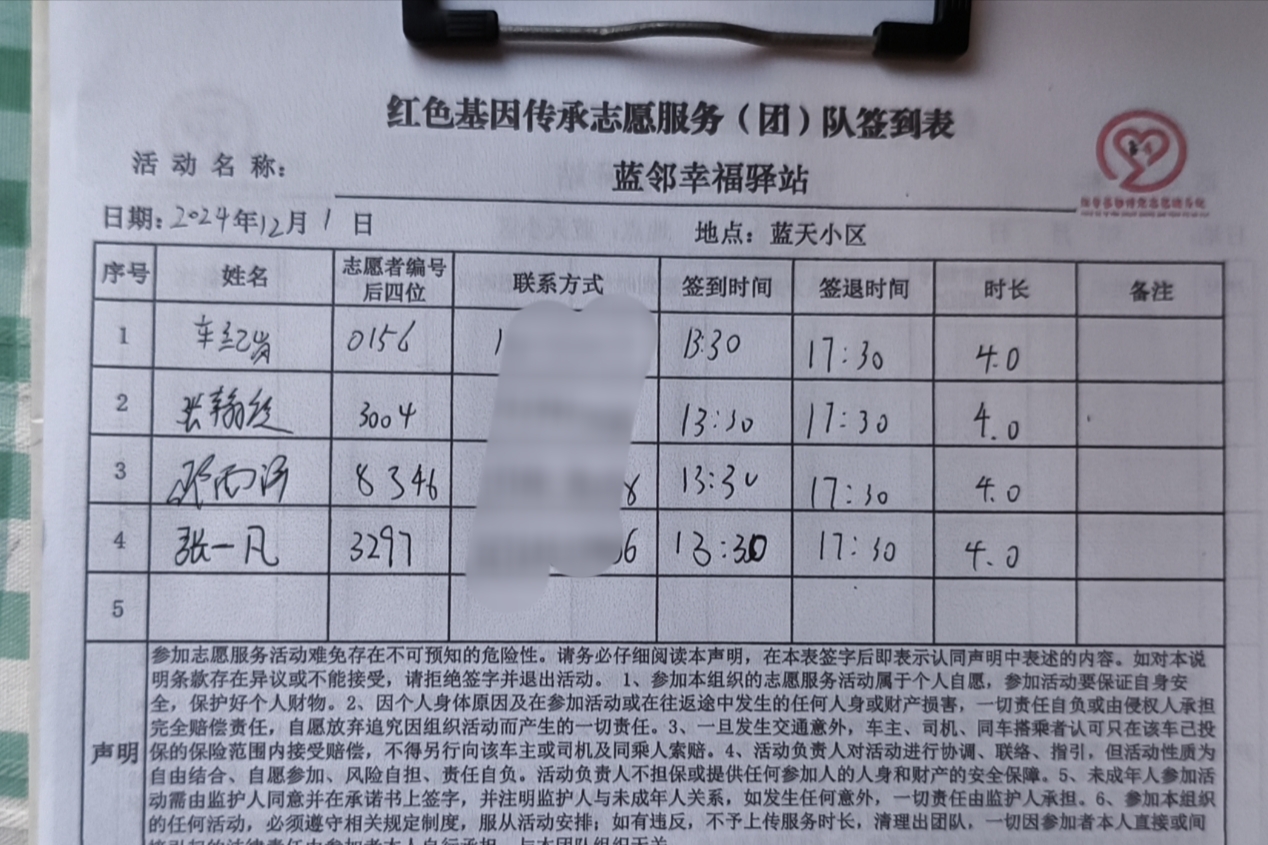 红色基因传承志愿服务（团）队签到表
活动名称： 蓝邻幸福驿站
日期：2024年12月1日 地点：蓝天小区
序号 姓名 志愿者编号后四位 联系方式 签到时间 签退时间 时长 备注
1 车纪岁 0156 1 13:30 17:30 4.0
2 张翰丝 3004 13:30 17:30 4.0
3 8346 8 13:30 17:30 4.0
4 张一凡 3297 36 13:30 17:30 4.0
5
声明
参加志愿服务活动难免存在不可预知的危险性。请务必仔细阅读本声明，在本表签字后即表示认同声明中表述的内容。如对本说
明条款存在异议或不能接受，请拒绝签字并退出活动。 1、参加本组织的志愿服务活动属于个人自愿，参加活动要保证自身安
全，保护好个人财物。2、因个人身体原因及在参加活动或在往返途中发生的任何人身或财产损害，一切责任自负或由侵权人承担
完全赔偿责任，自愿放弃追究因组织活动而产生的一切责任。3、一旦发生交通意外，车主、司机、同车搭乘者认可只在该车已投
保的保险范围内接受赔偿，不得另行向该车主或司机及同乘人索赔。4、活动负责人对活动进行协调、联络、指引，但活动性质为
自由结合、自愿参加、风险自担、责任自负。活动负责人不担保或提供任何参加人的人身和财产的安全保障。5、未成年人参加活
动需由监护人同意并在承诺书上签字，并注明监护人与未成年人关系，如发生任何意外，一切责任由监护人承担。6、参加本组织
的任何活动，必须遵守相关规定制度，服从活动安排；如有违反，不予上传服务时长，清理出团队，一切因参加者本人直接或间
接引起的法律责任由参加者本人自行承担，与本团队组织无关